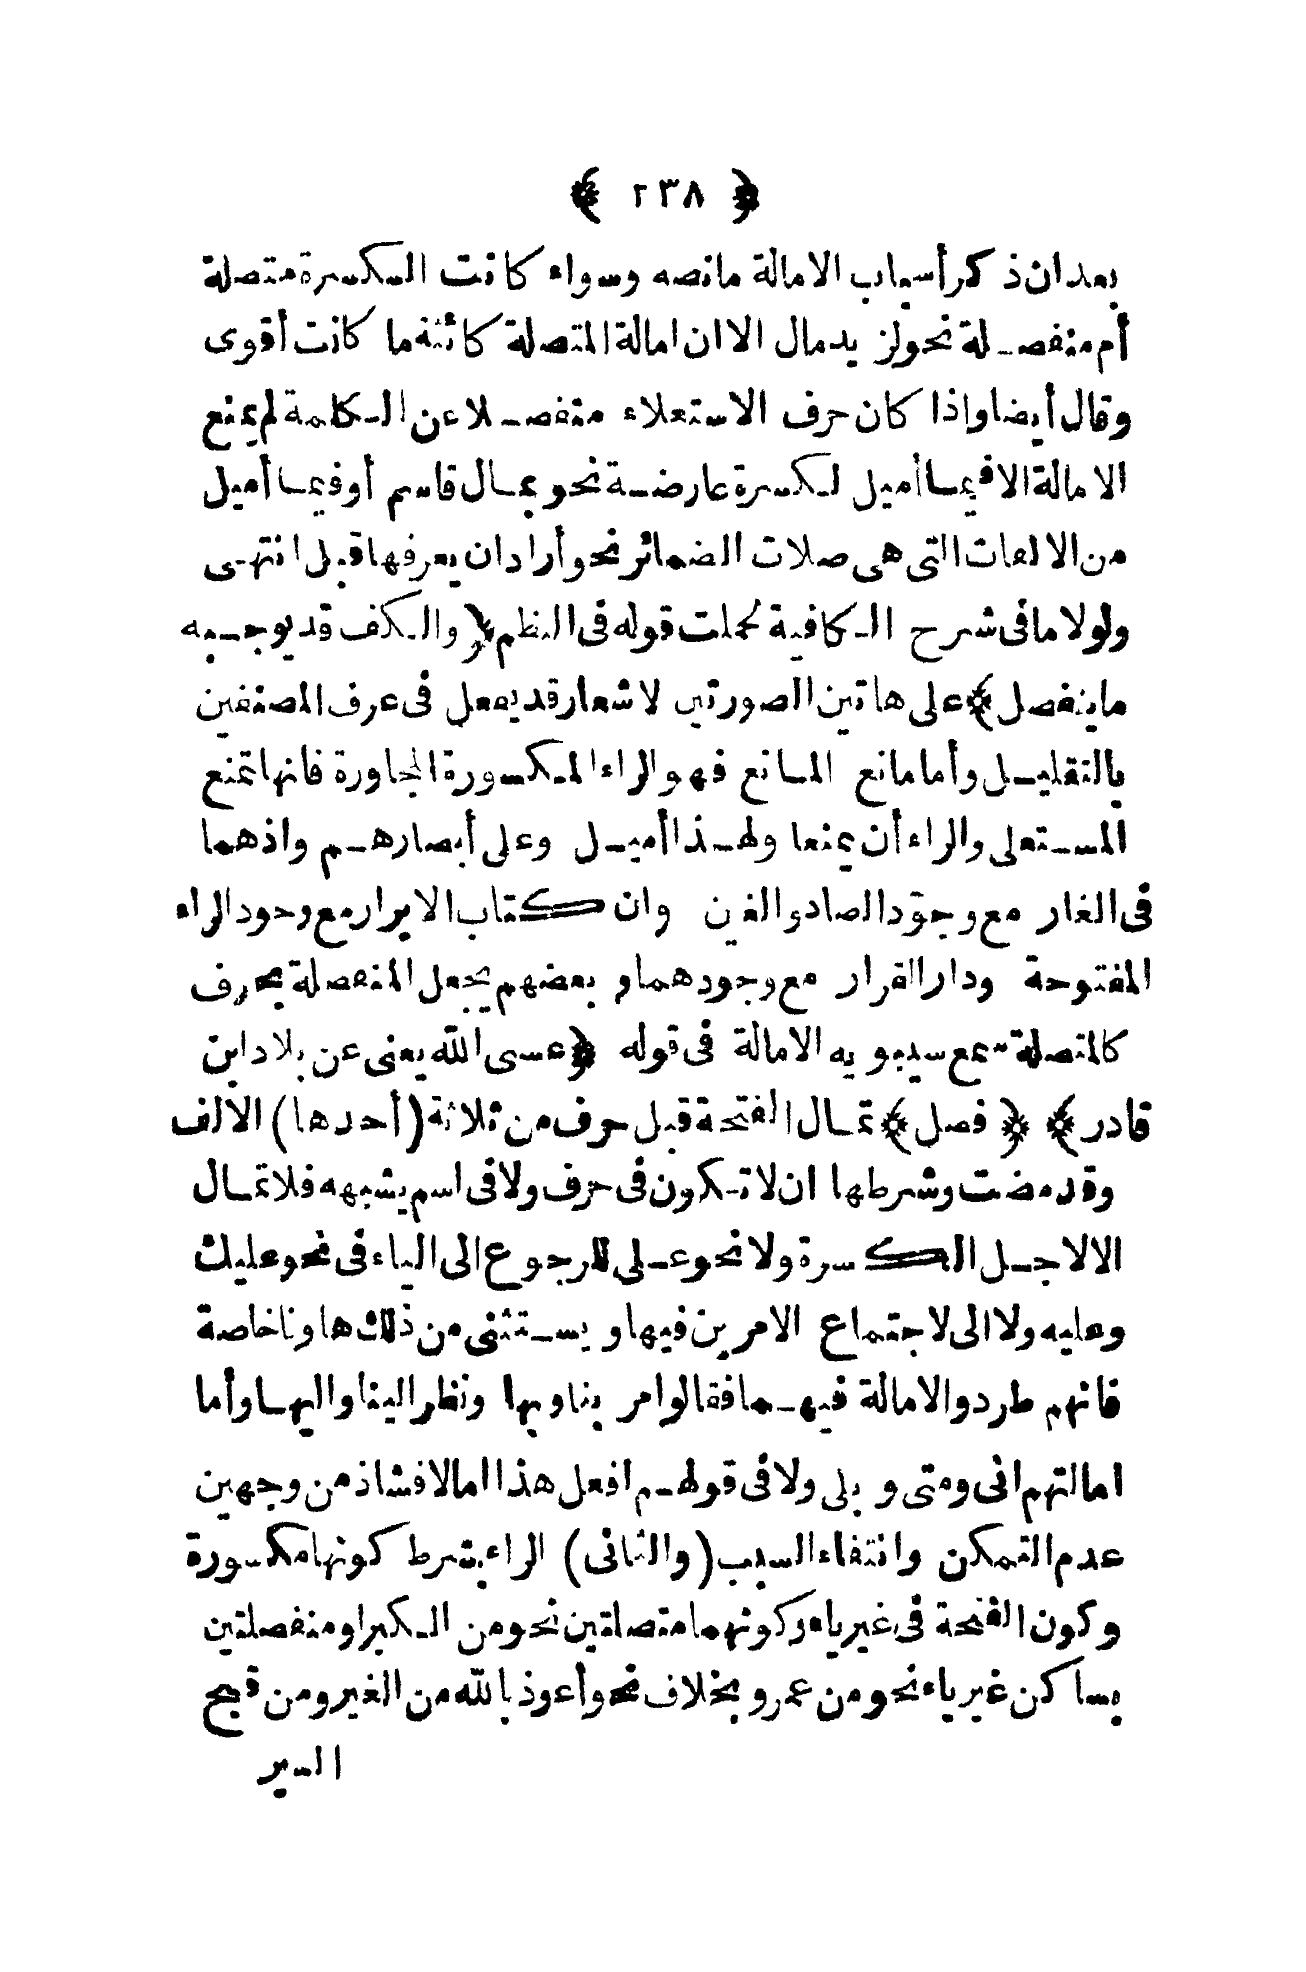 ﴿ ٢٣٨ ﴾
بعد ان ذكر أسباب الامالة مانصه وسواء كانت الكسرة متصلة
أم منفصلة نحو لزيد مال الا ان امالة المتصلة كائنة ما كانت أقوى
وقال أيضا واذا كان حرف الاستعلاء منفصلا عن الكلمة لم يمنع
الامالة الا فيما أميل لكسرة عارضة نحو بمال قاسم أو فيما أميل
من الالفات التى هى صلات الضمائر نحو أراد ان يعرفها قبل انتهى
ولولا ما فى شرح الكافية لحملت قوله فى النظم ﴿ والكف قد يوجبه
ماينفصل ﴾ على هاتين الصورتين لاشعار قد يفعل فى عرف المصنفين
بالتقليل وأما مانع المانع فهو الراء المكسورة المجاورة فانها تمنع
المستعلى والراء أن يمنعا ولهذا أميل وعلى أبصارهم واذهما
فى الغار مع وجود الصاد والغين وان كتاب الابرار مع وجود الراء
المفتوحة ودار القرار مع وجودهما و بعضهم يجعل المنفصلة بحرف
كالمتصلة سمع سيبويه الامالة فى قوله ﴿ عسى الله يغنى عن بلاد ابن
قادر ﴾ ﴿ فصل ﴾ تمال الفتحة قبل حرف من ثلاثة (أحدها) الالف
وقد مضت وشرطها ان لا تكون فى حرف ولا فى اسم يشبهه فلا تمال
الا لاجل الكسرة ولا نحو على للرجوع الى الياء فى نحو عليك
وعليه ولا الى لاجتماع الامرين فيها و يستثنى من ذلك ها ونا خاصة
فانهم طردوا الامالة فيهما فقالوا مر بنا وبها ونظر الينا واليها وأما
امالتهم انى ومتى و بلى ولا فى قولهم افعل هذا امالا فشاذ من وجهين
عدم التمكن وانتفاء السبب (والثانى) الراء بشرط كونها مكسورة
وكون الفتحة فى غير ياء وكونهما متصلتين نحو من الكبر او منفصلتين
بساكن غير ياء نحو من عمرو بخلاف نحو أعوذ بالله من الغير ومن قبح
السير